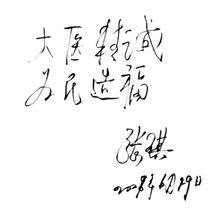 大医精诚
为民造福
张琪
2008年6月29日